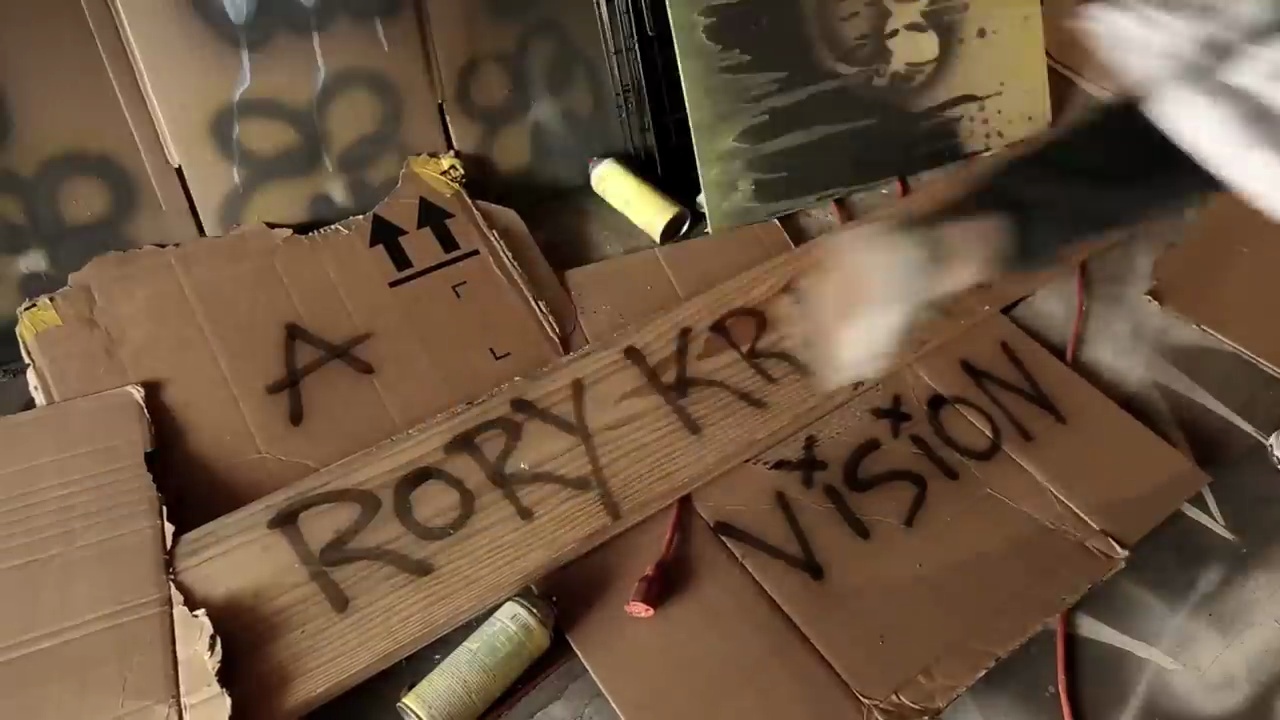 A
RORY KR
ViSiON